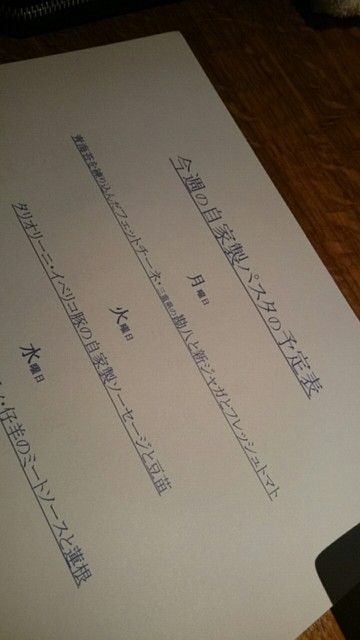 今週の自家製パスタの予定表
月曜日
青海苔を練り込んだフェットチーネ・三重県の勘八と新ジャガとフレッシュトマト
火曜日
タリオリーニ・イベリコ豚の自家製ソーセージと豆苗
水曜日
・仔羊のミートソースと蓮根